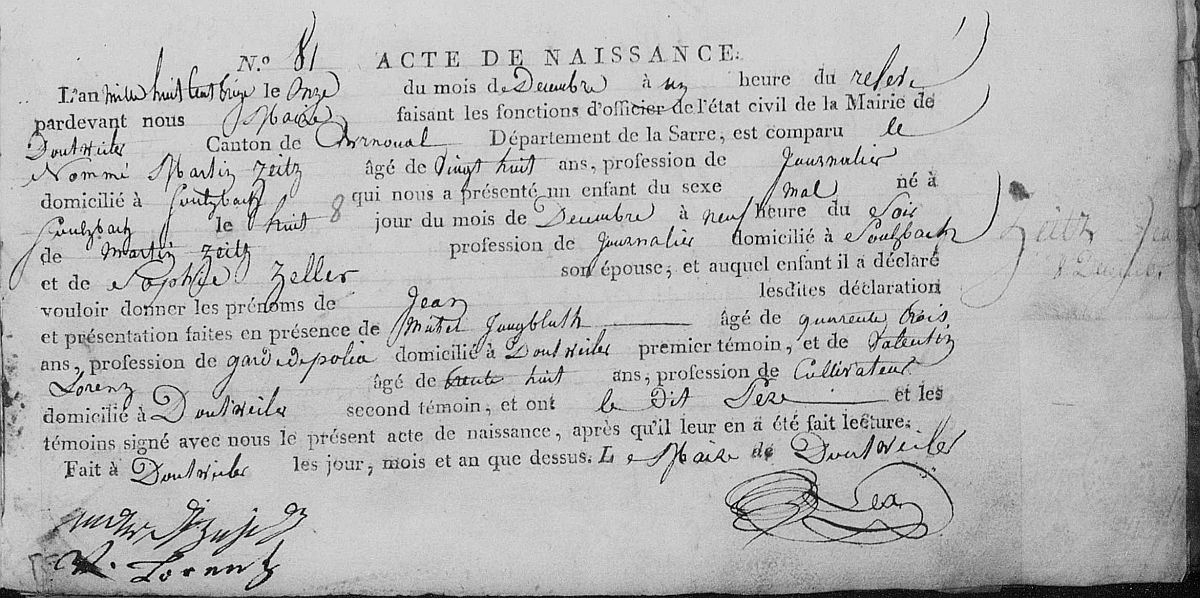 N.º 81 ACTE DE NAISSANCE.
L'an mille huit cent treize le Onze du mois de Decembre à un heure du releve
pardevant nous Maire faisant les fonctions d'officier de l'état civil de la Mairie de
Doutweiler Canton de Arnoual Département de la Sarre, est comparu le
Nommé Martin Zeitz âgé de Vingt huit ans, profession de Journalier
domicilié à Soultzbach qui nous a présenté un enfant du sexe mal né à
Soultzbach le huit 8 jour du mois de Decembre à neuf heure du Soir
de Martin Zeitz profession de Journalier domicilié à Soultzbach
et de Sophie Zeller son épouse; et auquel enfant il a déclaré
vouloir donner les prénoms de Jean lesdites déclaration
et présentation faites en présence de Michel Jungbluth âgé de quarente trois
ans, profession de garde de police domicilié à Doutweiler premier témoin, et de Valentin
Lorenz âgé de trente huit ans, profession de Cultivateur
domicilié à Doutweiler second témoin, et ont le dit Père et les
témoins signé avec nous le présent acte de naissance, après qu'il leur en a été fait lecture.
Fait à Doutweiler les jour, mois et an que dessus. Le Maire de Doutweiler
V. Lorentz
Zeitz Jean
8 Decembre